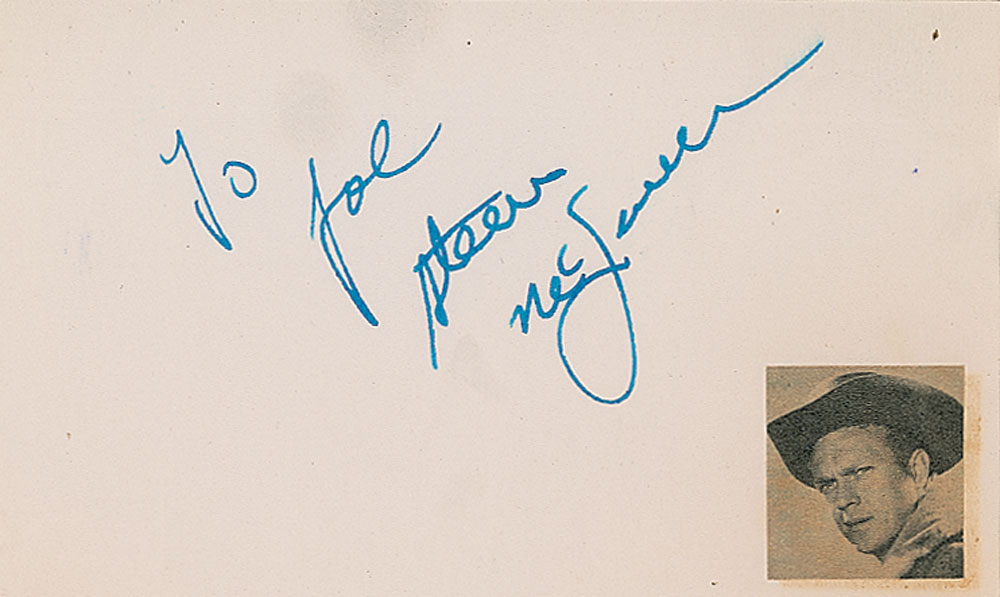 To Joe
Steve
McQueen